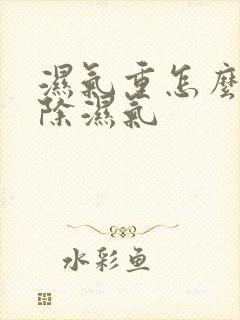 濕氣重怎麼
除濕氣
水彩魚